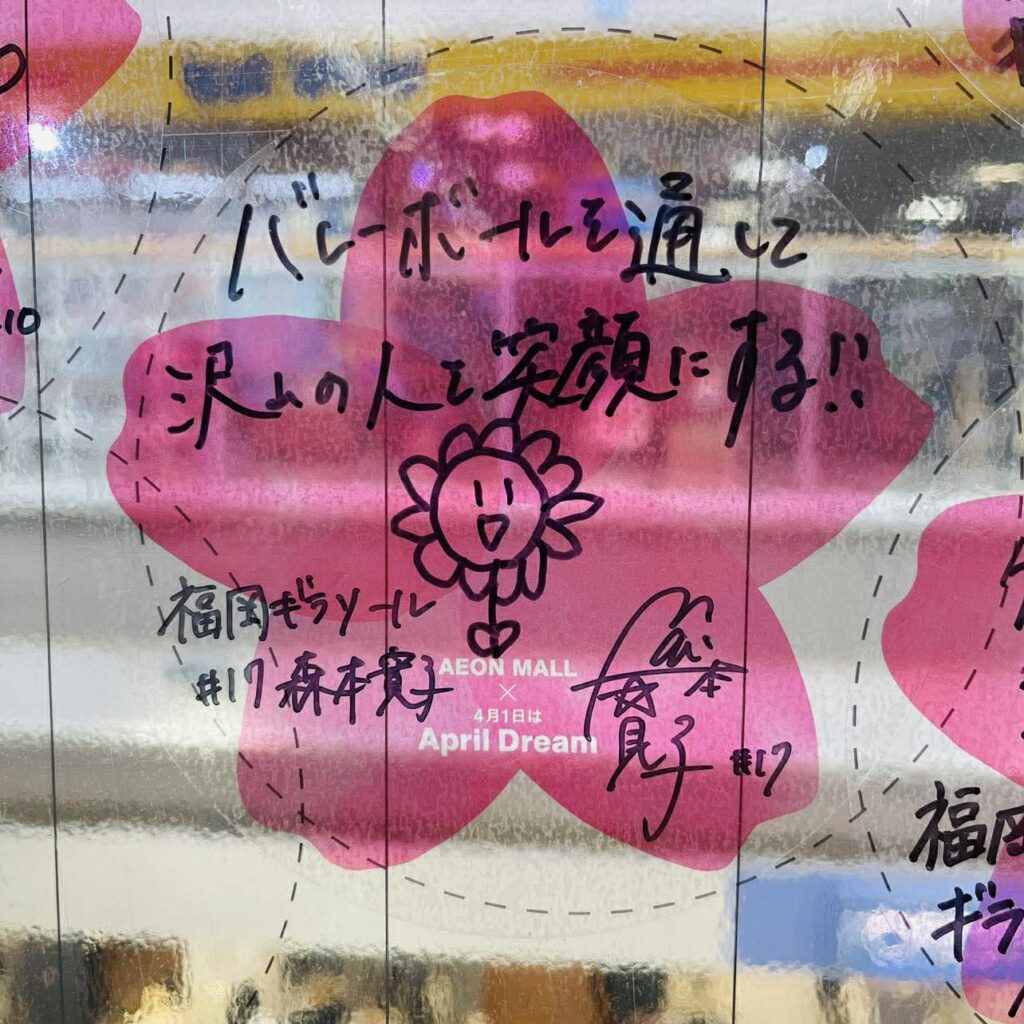 バレーボールを通して
沢山の人を笑顔にする!!
福岡ギラソール
#17 森本寛子
AEON MALL
×
4月1日は
April Dream
森本寛子 #17
.10
福岡
ギラ